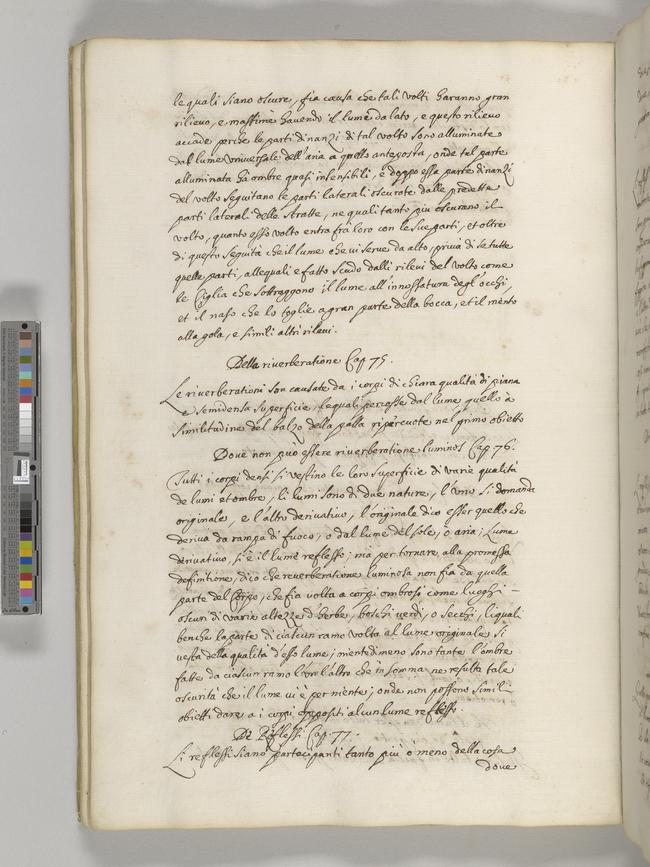 le quali siano oscure, fia causa che tali volti haranno gran
rilievo, e massime havendo il lume da lato, e questo rilievo
accade perche le parti dinanzi di tal volto sono alluminate
dal lume universale dell'aria a quello anteposta, onde tal parte
alluminata hà ombre quasi insensibili, e doppo essa parte dinanzi
del volto seguitano le parti laterali oscurate dalle predette
parti laterali delle stratte, ne quali tanto piu oscurano il
volto, quanto esso volto entra frà loro con le sue parti, et oltre
di questo seguità che il lume che vi serve da alto, priva di se tutte
quelle parti, alle quali è fatto scudo dalli rilevi del volto come
le Ciglia che sottraggono il lume all'innossatura degl'occhi,
et il naso che lo toglie a gran parte della bocca, et il mento
alla gola, e simili altri rilevi.
Della riverberatione Cap 75.
Le riverberationi son causate da i corpi di chiara qualità di piana
e semidensa superficie, le quali percosse dal lume quello à
similitudine del balzo della palla ripercuote nel primo obietto
Dove non può essere riverberatione luminos Cap 76.
Tutti i corpi densi si vestino le loro superficie di varie qualità
de lumi et ombre, li lumi sono di due nature, l'uno si domanda
originale, e l'altro derivativo, l'originale dico esser quello che
deriva da vampa di fuoco, o dal lume del sole, ò aria; Lume
derivativo, si è il lume reflesso; mà per tornare alla promessa
definitione, dico che reverberatione luminosa non fia da quella
parte del Corpo, che fia volta a corpi ombrosi come luoghi -
oscuri di varie altezze d'herbe, boschi verdi, o secchi, li quali
benche la parte di ciascun ramo volta al lume originale si
vesta della qualità d'esso lume; nientedimeno sono tante l'ombre
fatte da ciascun ramo l'un l'altro che in somma ne resulta tale
oscurità che il lume vi è per niente; onde non possono simili
obietti dare a i corpi oppositi alcun lume reflesso.
De Riflessi Cap. 77.
Li reflessi siano partecipanti tanto più o meno della cosa
dove